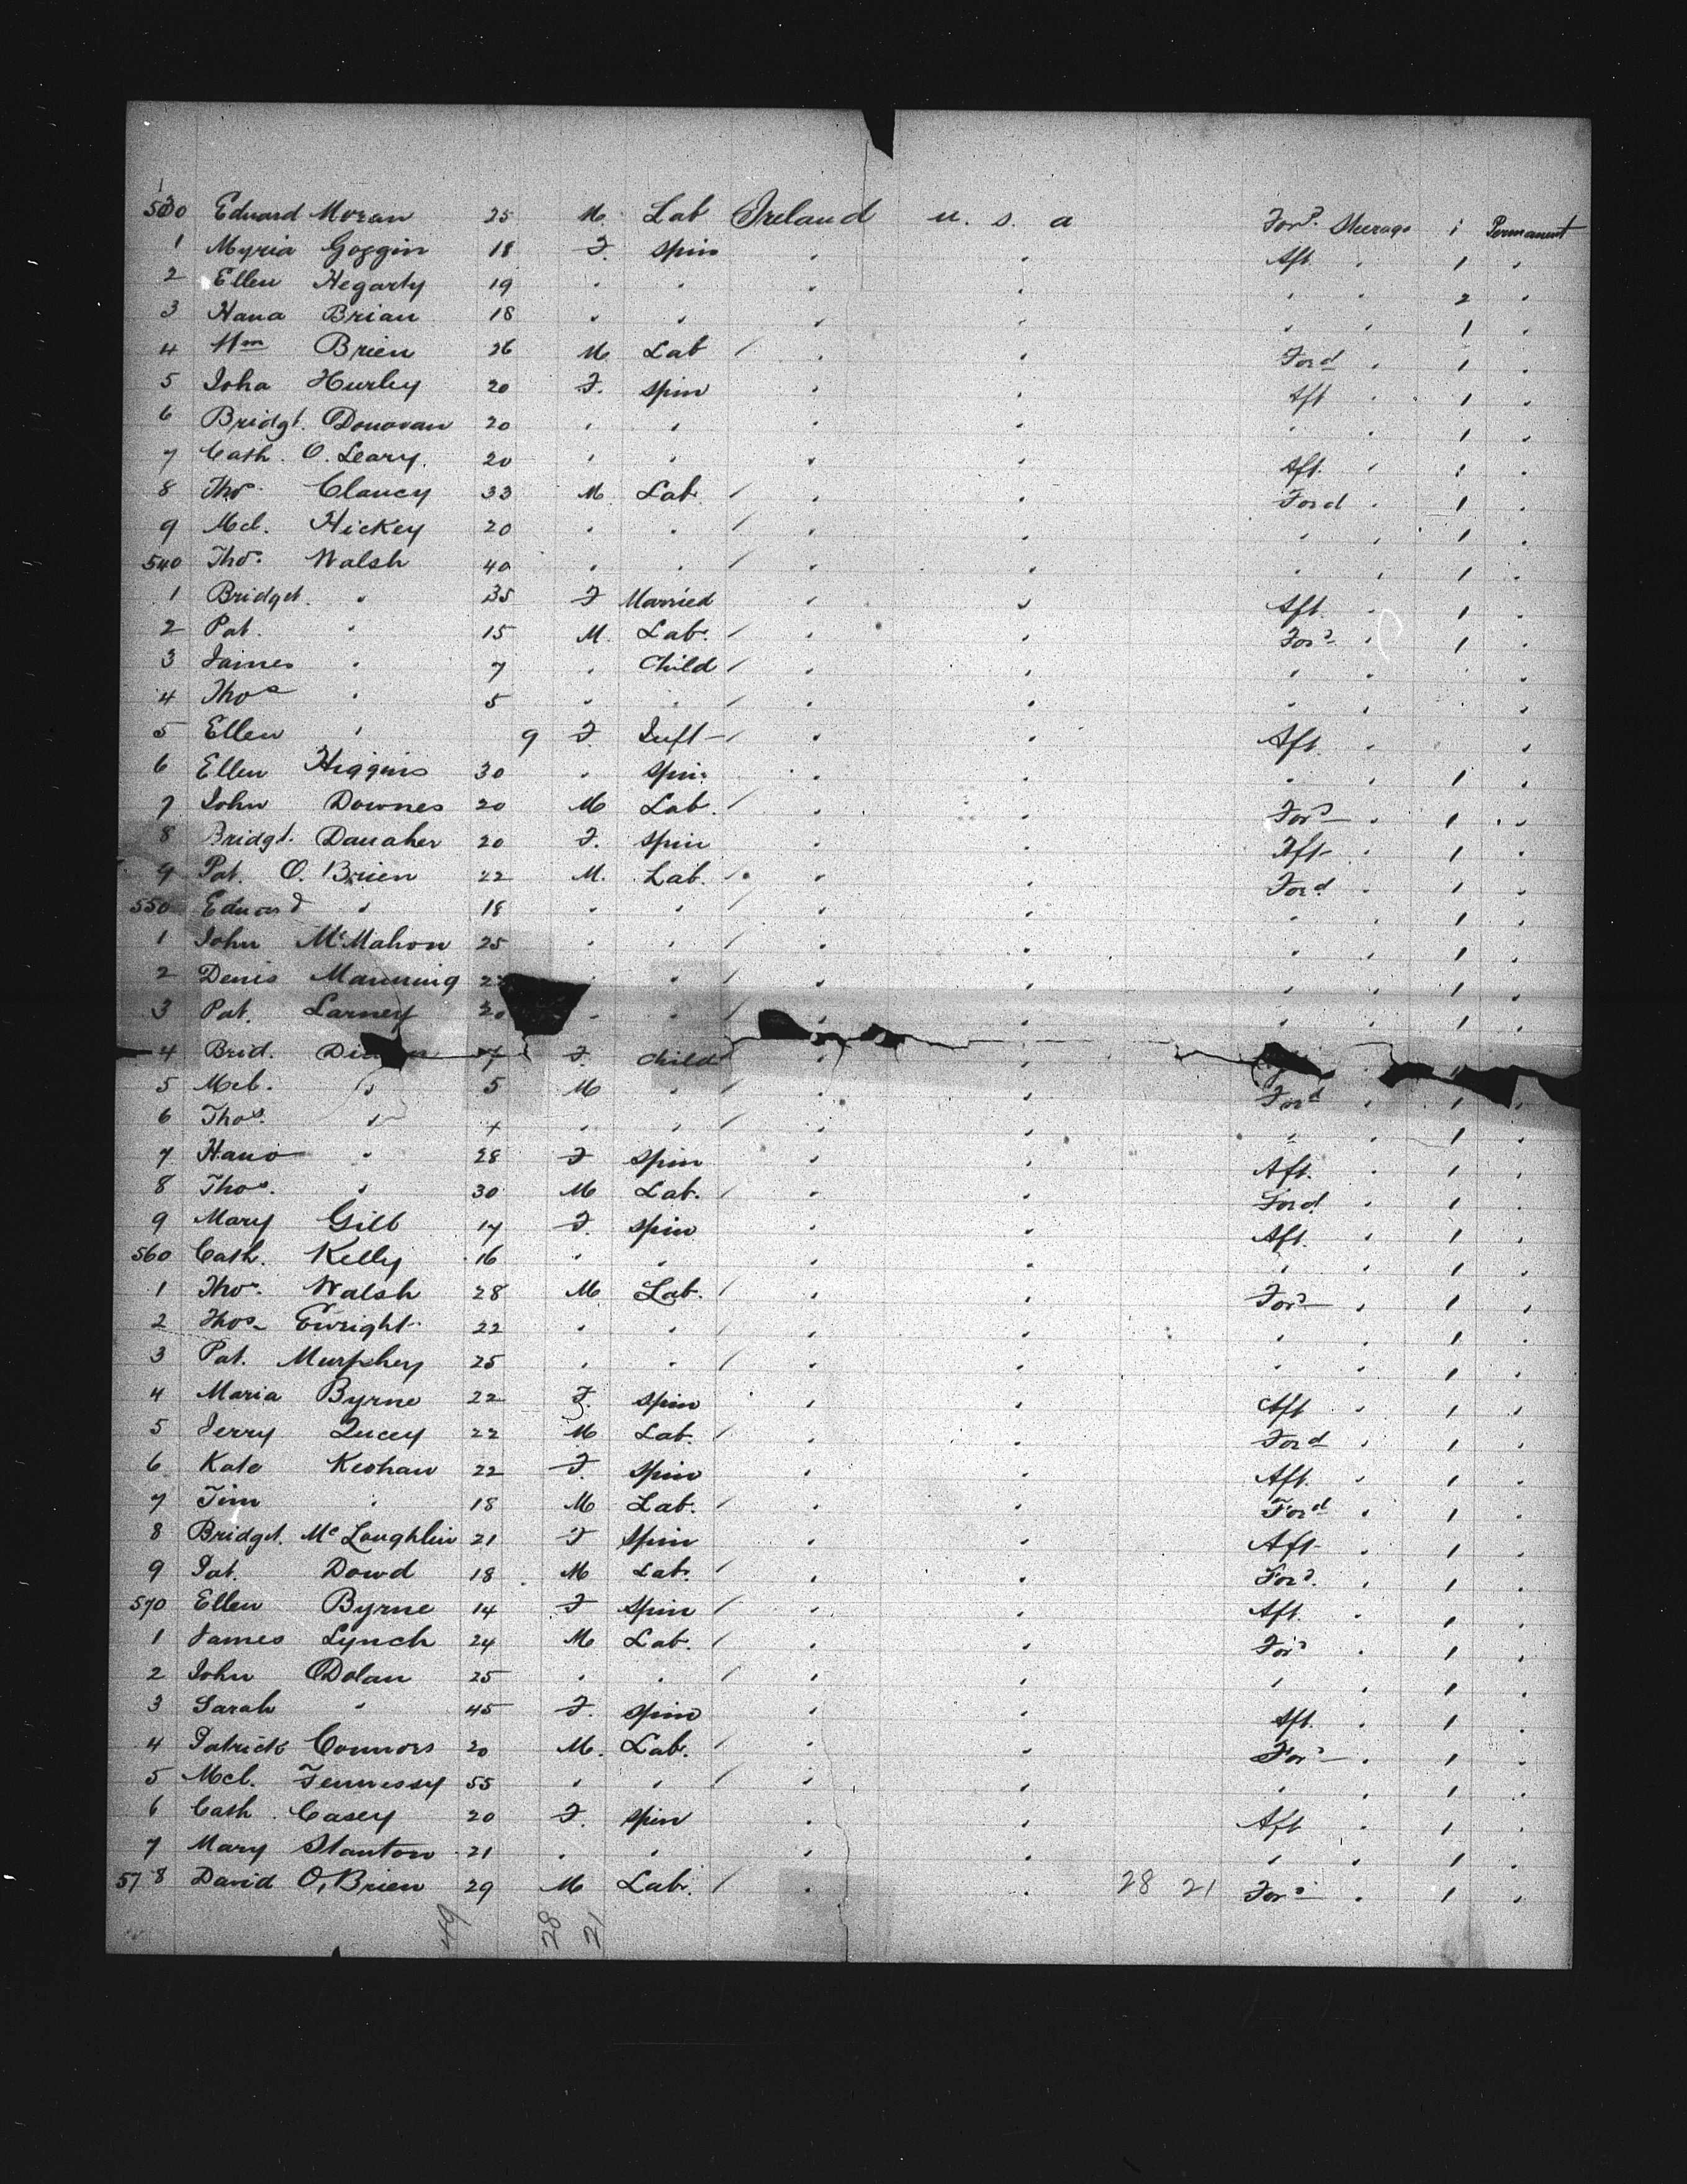 530 Edward Moran 25 M Lab Ireland u. s. a Ford. Steerage 1 Permanent
1 Myria Goggin 18 F. Spin " " Aft. " 1 "
2 Ellen Hegarty 19 " " " " " 2 "
3 Hana Brian 18 " " " " " " 1 "
4 Wm Brien 26 M Lab / " " Ford " 1 "
5 Joha Hurley 20 F. Spin " " Aft " 1 "
6 Bridgt. Donovan 20 " " " " " " 1 "
7 Cath. O. Leary. 20 " " " " Aft. " 1 "
8 Thos. Clancy 33 M Lab. / " " Ford " 1 "
9 Mcl. Hickey 20 " " / " " " " 1 "
540 Thos. Walsh 40 " " / " " " " 1 "
1 Bridget. " 35 F Married " " Aft. " 1 "
2 Pat. " 15 M. Lab. / " " Ford. " 1 "
3 James " 7 " Child / " " " " "
4 Thos " 5 " " / " " " " "
5 Ellen " 9 F. Inft / " " Aft. " "
6 Ellen Higgins 30 " Spin. " " " " 1 "
7 John Downes 20 M Lab. / " " Ford " 1 "
8 Bridgt. Danaher 20 F. Spin " " Aft " 1 "
9 Pat. O. Brien 22 M. Lab. / " " Ford " 1 "
550 Edward " 18 " " / " " " " 1 "
1 John McMahon 25 " " / " " " " 1 "
2 Denis Manning " " / " " " " 1 "
3 Pat. Larney 20 " " / " " " " 1 "
4 Brid. 7 F. Child " " " 1
5 Mcl. " 5 M " / " " Ford " 1 "
6 Thos. " + " " / " " " " 1 "
7 Hano " 28 F Spin " " Aft. " 1 "
8 Thos. " 30 M Lab. / " " Ford. " 1 "
9 Mary Gill 17 F. Spin " " Aft. " 1 "
560 Cath. Kelly 16 " " " " " " 1 "
1 Thos. Walsh 28 M Lab. / " " Ford " 1 "
2 Thos. Ewright 22 " " / " " " " 1 "
3 Pat. Murphey 25 " " / " " " " 1 "
4 Maria Byrne 22 F. Spin " " Aft " 1 "
5 Jerry Lucey 22 M Lab. / " " Ford " 1 "
6 Kate Keohan 22 F. Spin " " Aft. " 1 "
7 Tim " 18 M Lab. / " " Ford " 1 "
8 Bridget. McLoughlin 21 F Spin " " Aft. " 1 "
9 Pat. Dowd 18 M Lab. / " " Ford. " 1 "
570 Ellen Byrne 14 F Spin / " " Aft. " 1 "
1 James Lynch 24 M Lab. / " " Ford " 1 "
2 John Dolan 25 " " / " " " " 1 "
3 Sarah " 45 F. Spin " " Aft. " 1 "
4 Patrick Connors 20 M. Lab. / " " Ford " 1 "
5 Mcl. Fennessy 55 " " / " " " " 1 "
6 Cath. Casey 20 F. Spin " " Aft " 1 "
7 Mary Stanton 21 " " " " " " 1 "
578 David O, Brien 29 M Lab. / " " 28 21 Ford " 1 "
49 28 21